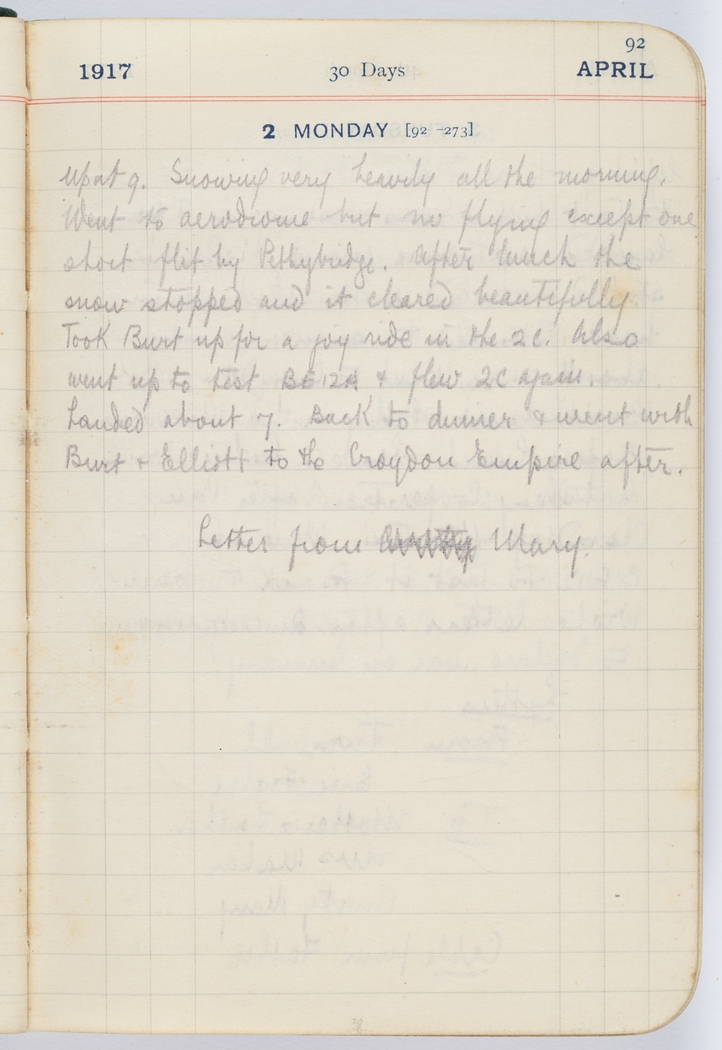 92
1917 30 Days APRIL
2 MONDAY [92-273]
Up at 9. Snowing very heavily all the morning.
Went to aerodrome but no flying except one
short flit by Pethybridge. After lunch the
snow stopped and it cleared beautifully.
Took Burt up for a joy ride in the 2C. Also
went up to test BE12A & flew 2C again.
Landed about 7. Back to dinner & went with
Burt & Elliott to the Croydon Empire after.
Letter from Mary.